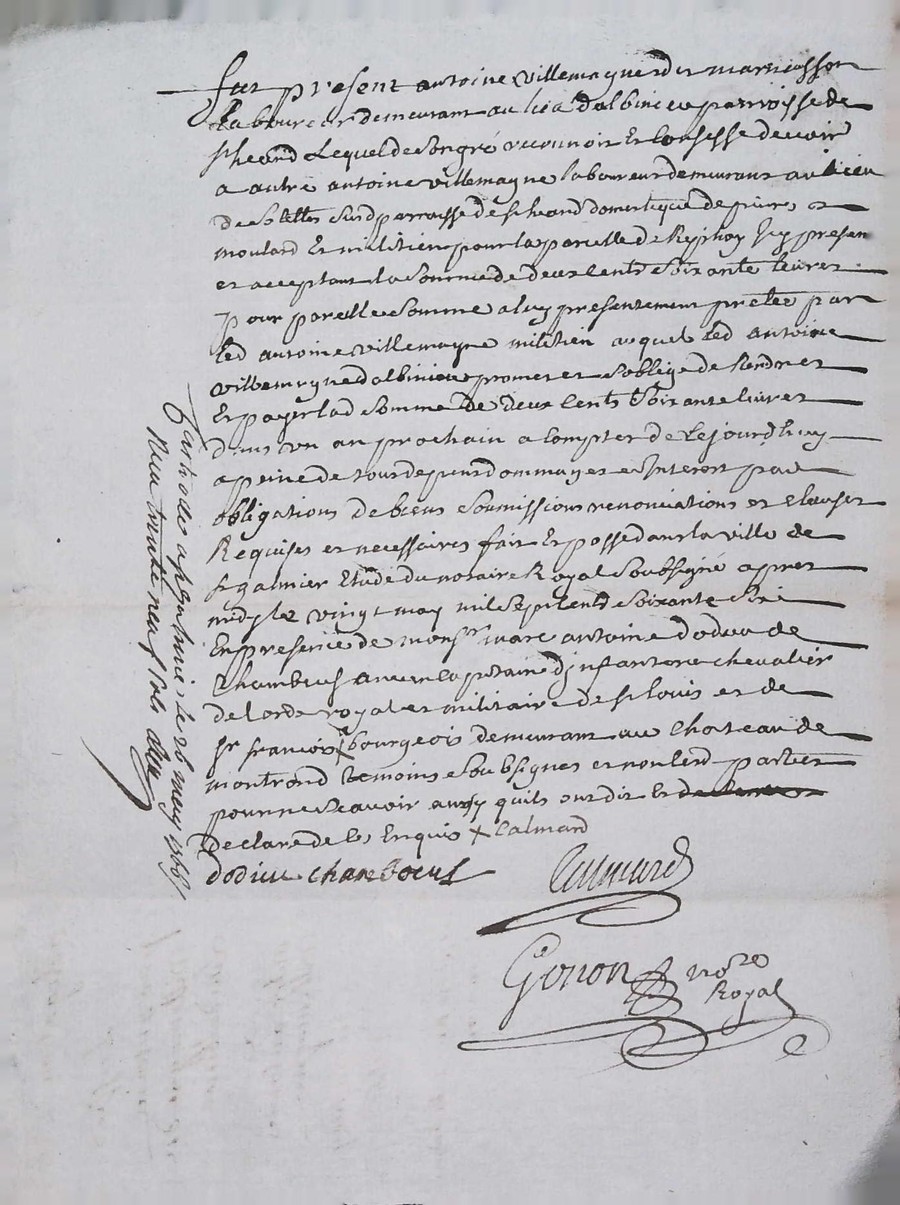 fut present antoine villemagne des marnassson
Laboureur demeurant au lieu d'albinieu parroisse de
st heand Lequel de son gré reconnoit Et Confesse devoir
a autre antoine villemagne laboureur demeurant au Lieu
de susd parroisse de st heand domestique de
moulard Et militien pour la parcelle de present
et acceptant la Somme de deux Cents Soixante livres
pour pareille Somme a luy presentement pretée par
Led antoine villemagne militien auquel Led antoine
villemagne d'albinieu promet et S'oblige de Rendre
Et payer lad Somme de deux Cents Soixante livres
dans un an prochain a Compter de Cejourd'huy
a peine de tous depens dommages et Interets par
obligations de biens Soumissions renonciations et Clauses
Requises et necessaires fait Et passé dans la ville de
st galmier Etude du notaire Royal Soubsigné apres
midy le vingt may mil Sept Cents Soixante Six
En presence de monsr marc antoine dodieu de
Chambeuf ancien capitaine d'infanterie chevalier
de lordre royal et militaire de st louis et de
sr francois x bourgeois demeurant au Chateau de
montrond temoins Soubsignes et non led parties
pour ne Scavoir ainsy quils ont dit Et de
declaré de Ce Enquis x Calmard
dodieu chamboeuf
Calmard
Gonon nore
Royal
le 26 may 1766
Reçu trente neuf sols